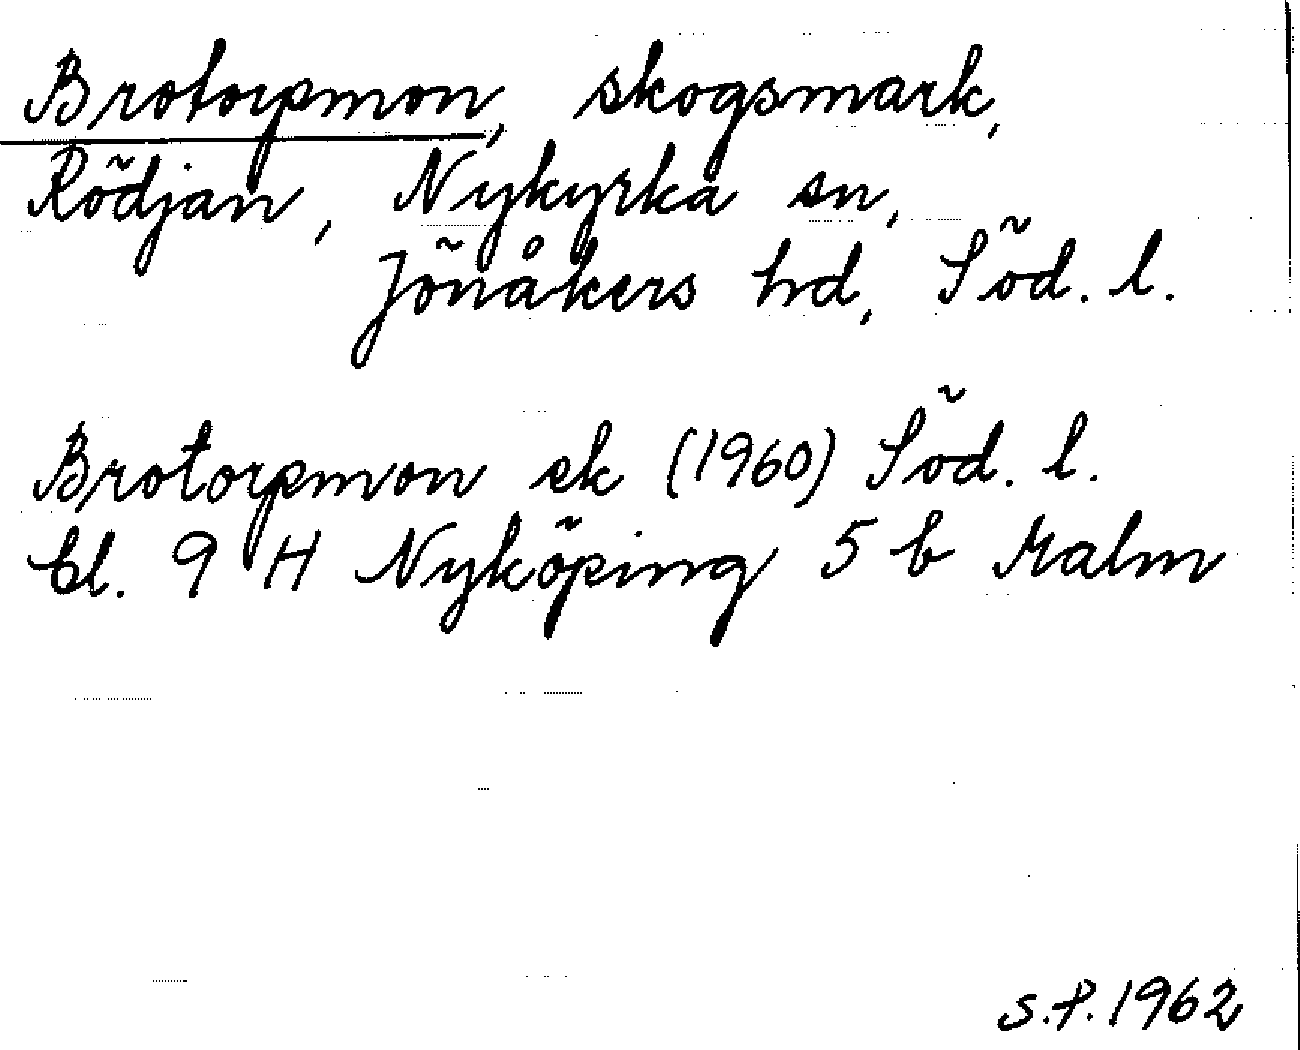 Brotorpmon, skogsmark,
Rödjan, Nykyrka sn,
Jönåkers hd, Söd. l.
Brotorpmon ek (1960) Söd. l.
bl. 9 H Nyköping 5 b Malm
S.P. 1962